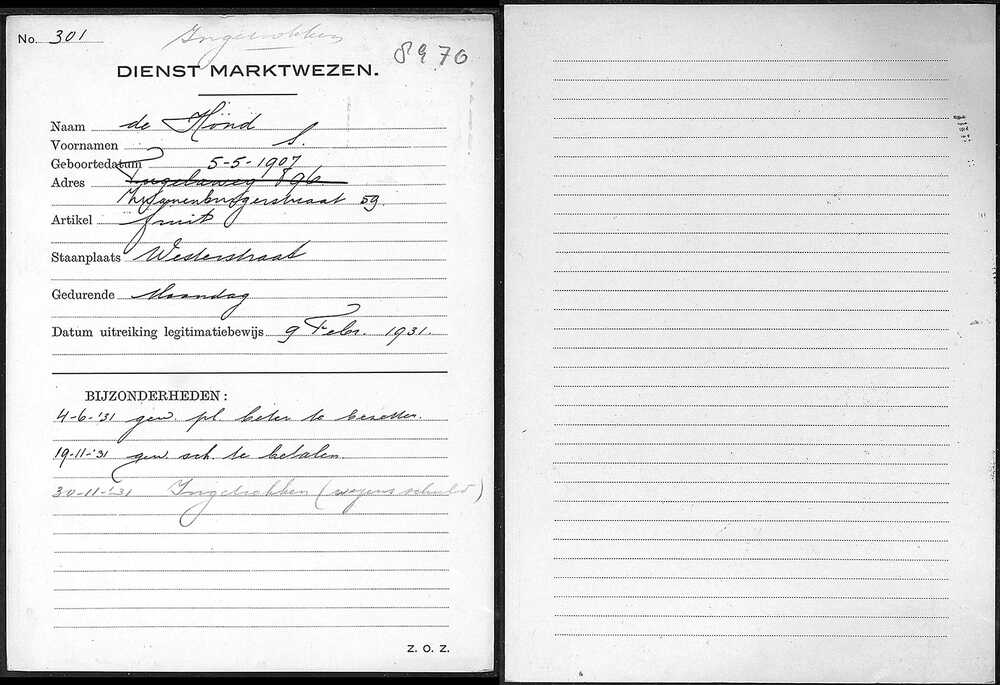 No. 301
Ingetrokken
8970
DIENST MARKTWEZEN.
Naam de Hond
Voornamen S.
Geboortedatum 5-5-1907
Adres 
Zwanenburgerstraat 59.
Artikel fruit
Staanplaats Westerstraat
Gedurende Maandag
Datum uitreiking legitimatiebewijs 9 Febr. 1931.
BIJZONDERHEDEN:
4-6-'31 gew. pl. beter te bezetten.
19-11-'31 gew. sch. te betalen.
30-11-'31 Ingetrokken (wegens schuld)
Z. O. Z.